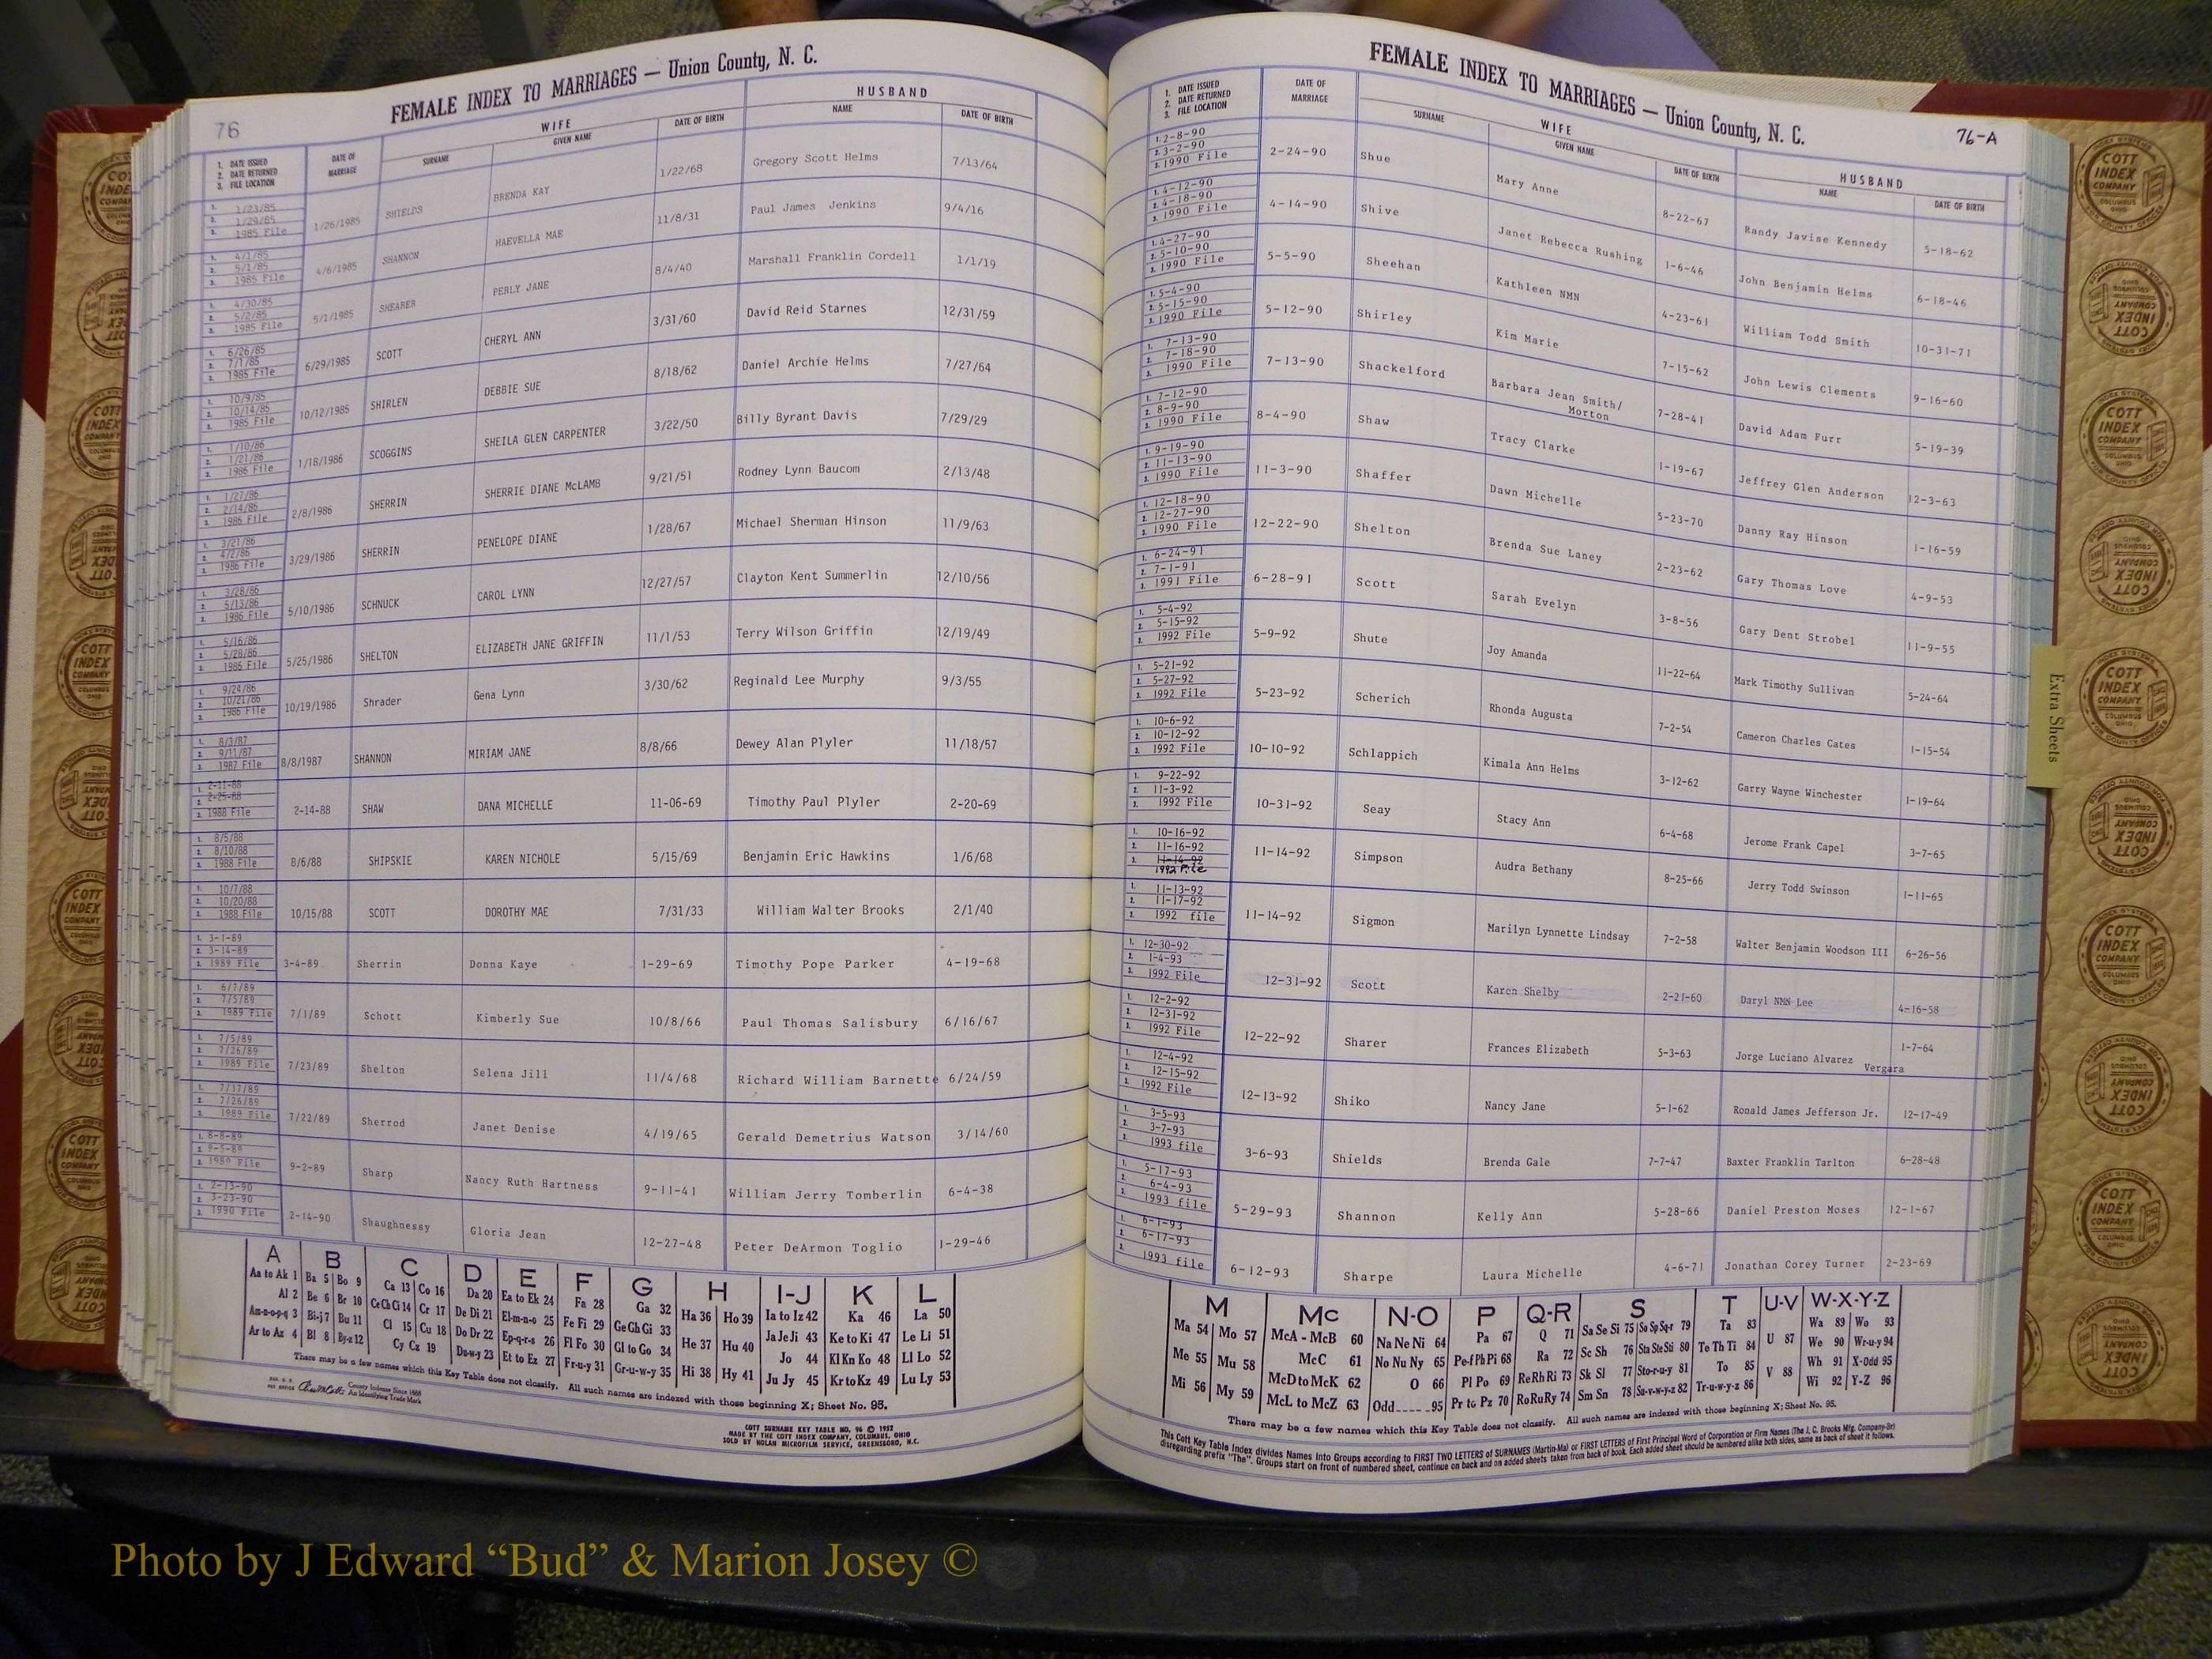 76
FEMALE INDEX TO MARRIAGES — Union County, N. C.
1. DATE ISSUED
2. DATE RETURNED
3. FILE LOCATION
DATE OF MARRIAGE
WIFE
SURNAME
GIVEN NAME
DATE OF BIRTH
HUSBAND
NAME
DATE OF BIRTH
1. 1/23/85 2. 1/29/85 3. 1985 File 1/26/1985 SHIELDS BRENDA KAY 1/22/68 Gregory Scott Helms 7/13/64
1. 4/1/85 2. 5/1/85 3. 1985 File 4/6/1985 SHANNON HAEVELLA MAE 11/8/31 Paul James Jenkins 9/4/16
1. 4/30/85 2. 5/2/85 3. 1985 File 5/1/1985 SHEARER PERLY JANE 8/4/40 Marshall Franklin Cordell 1/1/19
1. 6/26/85 2. 7/1/85 3. 1985 File 6/29/1985 SCOTT CHERYL ANN 3/31/60 David Reid Starnes 12/31/59
1. 10/9/85 2. 10/14/85 3. 1985 File 10/12/1985 SHIRLEN DEBBIE SUE 8/18/62 Daniel Archie Helms 7/27/64
1. 1/10/86 2. 1/21/86 3. 1986 File 1/18/1986 SCOGGINS SHEILA GLEN CARPENTER 3/22/50 Billy Byrant Davis 7/29/29
1. 1/27/86 2. 2/14/86 3. 1986 File 2/8/1986 SHERRIN SHERRIE DIANE McLAMB 9/21/51 Rodney Lynn Baucom 2/13/48
1. 3/21/86 2. 4/2/86 3. 1986 File 3/29/1986 SHERRIN PENELOPE DIANE 1/28/67 Michael Sherman Hinson 11/9/63
1. 3/28/86 2. 5/13/86 3. 1986 File 5/10/1986 SCHNUCK CAROL LYNN 12/27/57 Clayton Kent Summerlin 12/10/56
1. 5/16/86 2. 5/28/86 3. 1986 File 5/25/1986 SHELTON ELIZABETH JANE GRIFFIN 11/1/53 Terry Wilson Griffin 12/19/49
1. 9/24/86 2. 10/21/86 3. 1986 File 10/19/1986 Shrader Gena Lynn 3/30/62 Reginald Lee Murphy 9/3/55
1. 8/3/87 2. 9/11/87 3. 1987 File 8/8/1987 SHANNON MIRIAM JANE 8/8/66 Dewey Alan Plyler 11/18/57
1. 2-11-88 2. 2-25-88 3. 1988 File 2-14-88 SHAW DANA MICHELLE 11-06-69 Timothy Paul Plyler 2-20-69
1. 8/5/88 2. 8/10/88 3. 1988 File 8/6/88 SHIPSKIE KAREN NICHOLE 5/15/69 Benjamin Eric Hawkins 1/6/68
1. 10/7/88 2. 10/20/88 3. 1988 File 10/15/88 SCOTT DOROTHY MAE 7/31/33 William Walter Brooks 2/1/40
1. 3-1-89 2. 3-14-89 3. 1989 File 3-4-89 Sherrin Donna Kaye 1-29-69 Timothy Pope Parker 4-19-68
1. 6/7/89 2. 7/5/89 3. 1989 File 7/1/89 Schott Kimberly Sue 10/8/66 Paul Thomas Salisbury 6/16/67
1. 7/5/89 2. 7/26/89 3. 1989 File 7/23/89 Shelton Selena Jill 11/4/68 Richard William Barnette 6/24/59
1. 7/17/89 2. 7/26/89 3. 1989 File 7/22/89 Sherrod Janet Denise 4/19/65 Gerald Demetrius Watson 3/14/60
1. 8-8-89 2. 9-5-89 3. 1989 File 9-2-89 Sharp Nancy Ruth Hartness 9-11-41 William Jerry Tomberlin 6-4-38
1. 2-13-90 2. 3-23-90 3. 1990 File 2-14-90 Shaughnessy Gloria Jean 12-27-48 Peter DeArmon Toglio 1-29-46
A B C D E F G H I-J K L
Aa to Ak 1 Ba 5 Bo 9 Ca 13 Co 16 Da 20 Ea to Ek 24 Fa 28 Ga 32 Ha 36 Ho 39 Ia to Iz 42 Ka 46 La 50
Al 2 Be 6 Br 10 Ce Ch Ci 14 Cr 17 De Di 21 El-m-n-o 25 Fe Fi 29 Ge Gh Gi 33 He 37 Hu 40 Ja Je Ji 43 Ke to Ki 47 Le Li 51
Am-n-o-p-q 3 Bi-j 7 Bu 11 Cl 15 Cu 18 Do Dr 22 Ep-q-r-s 26 Fl Fo 30 Gl to Go 34 Hi 38 Hy 41 Jo 44 Kl Kn Ko 48 Ll Lo 52
Ar to Az 4 Bl 8 By-z 12 Cy Cz 19 Du-w-y 23 Et to Ez 27 Fr-u-y 31 Gr-u-w-y 35 Ju Jy 45 Kr to Kz 49 Lu Ly 53
There may be a few names which this Key Table does not classify. All such names are indexed with those beginning X; Sheet No. 95.
County Indexes Since 1888
An Identifying Trade Mark
COTT SURNAME KEY TABLE NO. 96 © 1957
MADE BY THE COTT INDEX COMPANY, COLUMBUS, OHIO
SOLD BY NOLAN MICROFILM SERVICE, GREENSBORO, N.C.
FEMALE INDEX TO MARRIAGES — Union County, N. C.
76-A
1. DATE ISSUED
2. DATE RETURNED
3. FILE LOCATION
DATE OF MARRIAGE
WIFE
SURNAME
GIVEN NAME
DATE OF BIRTH
HUSBAND
NAME
DATE OF BIRTH
1. 2-8-90 2. 3-2-90 3. 1990 File 2-24-90 Shue Mary Anne 8-22-67 Randy Javise Kennedy 5-18-62
1. 4-12-90 2. 4-18-90 3. 1990 File 4-14-90 Shive Janet Rebecca Rushing 1-6-46 John Benjamin Helms 6-18-46
1. 4-27-90 2. 5-10-90 3. 1990 File 5-5-90 Sheehan Kathleen NMN 4-23-61 William Todd Smith 10-31-71
1. 5-4-90 2. 5-15-90 3. 1990 File 5-12-90 Shirley Kim Marie 7-15-62 John Lewis Clements 9-16-60
1. 7-13-90 2. 7-18-90 3. 1990 File 7-13-90 Shackelford Barbara Jean Smith/ Morton 7-28-41 David Adam Furr 5-19-39
1. 7-12-90 2. 8-9-90 3. 1990 File 8-4-90 Shaw Tracy Clarke 1-19-67 Jeffrey Glen Anderson 12-3-63
1. 9-19-90 2. 11-13-90 3. 1990 File 11-3-90 Shaffer Dawn Michelle 5-23-70 Danny Ray Hinson 1-16-59
1. 12-18-90 2. 12-27-90 3. 1990 File 12-22-90 Shelton Brenda Sue Laney 2-23-62 Gary Thomas Love 4-9-53
1. 6-24-91 2. 7-1-91 3. 1991 File 6-28-91 Scott Sarah Evelyn 3-8-56 Gary Dent Strobel 11-9-55
1. 5-4-92 2. 5-15-92 3. 1992 File 5-9-92 Shute Joy Amanda 11-22-64 Mark Timothy Sullivan 5-24-64
1. 5-21-92 2. 5-27-92 3. 1992 File 5-23-92 Scherich Rhonda Augusta 7-2-54 Cameron Charles Cates 1-15-54
1. 10-6-92 2. 10-12-92 3. 1992 File 10-10-92 Schlappich Kimala Ann Helms 3-12-62 Garry Wayne Winchester 1-19-64
1. 9-22-92 2. 11-3-92 3. 1992 File 10-31-92 Seay Stacy Ann 6-4-68 Jerome Frank Capel 3-7-65
1. 10-16-92 2. 11-16-92 3. 11-14-92 1992 File 11-14-92 Simpson Audra Bethany 8-25-66 Jerry Todd Swinson 1-11-65
1. 11-13-92 2. 11-17-92 3. 1992 file 11-14-92 Sigmon Marilyn Lynnette Lindsay 7-2-58 Walter Benjamin Woodson III 6-26-56
1. 12-30-92 2. 1-4-93 3. 1992 File 12-31-92 Scott Karen Shelby 2-21-60 Daryl NMN Lee 4-16-58
1. 12-2-92 2. 12-31-92 3. 1992 File 12-22-92 Sharer Frances Elizabeth 5-3-63 Jorge Luciano Alvarez Vergara 1-7-64
1. 12-4-92 2. 12-15-92 3. 1992 File 12-13-92 Shiko Nancy Jane 5-1-62 Ronald James Jefferson Jr. 12-17-49
1. 3-5-93 2. 3-7-93 3. 1993 file 3-6-93 Shields Brenda Gale 7-7-47 Baxter Franklin Tarlton 6-28-48
1. 5-17-93 2. 6-4-93 3. 1993 file 5-29-93 Shannon Kelly Ann 5-28-66 Daniel Preston Moses 12-1-67
1. 6-1-93 2. 6-17-93 3. 1993 file 6-12-93 Sharpe Laura Michelle 4-6-71 Jonathan Corey Turner 2-23-69
M Mc N-O P Q-R S T U-V W-X-Y-Z
Ma 54 Mo 57 McA - McB 60 Na Ne Ni 64 Pa 67 Q 71 Sa Se Si 75 So Sp Sq-r 79 Ta 83 U 87 Wa 89 Wo 93
Me 55 Mu 58 McC 61 No Nu Ny 65 Pe-f Ph Pi 68 Ra 72 Sc Sh 76 Sta Ste Sti 80 Te Th Ti 84 V 88 We 90 Wr-u-y 94
Mi 56 My 59 McD to McK 62 O 66 Pl Po 69 Re Rh Ri 73 Sk Sl 77 Sto-r-u-y 81 To 85 Wh 91 X-Odd 95
McL to McZ 63 Odd 95 Pr to Pz 70 Ro Ru Ry 74 Sm Sn 78 Su-v-w-y-z 82 Tr-u-w-y-z 86 Wi 92 Y-Z 96
There may be a few names which this Key Table does not classify. All such names are indexed with those beginning X; Sheet No. 95.
This Cott Key Table Index divides Names Into Groups according to FIRST TWO LETTERS of SURNAMES (Martin-Ma) or FIRST LETTERS of First Principal Word of Corporation or Firm Names (The J. C. Brooks Mfg. Company-Br)
disregarding prefix "The". Groups start on front of numbered sheet, continue on back and on added sheets taken from back of book. Each added sheet should be numbered alike both sides, same as back of sheet it follows.
Extra Sheets
COTT INDEX COMPANY COLUMBUS OHIO
Photo by J Edward “Bud” & Marion Josey ©